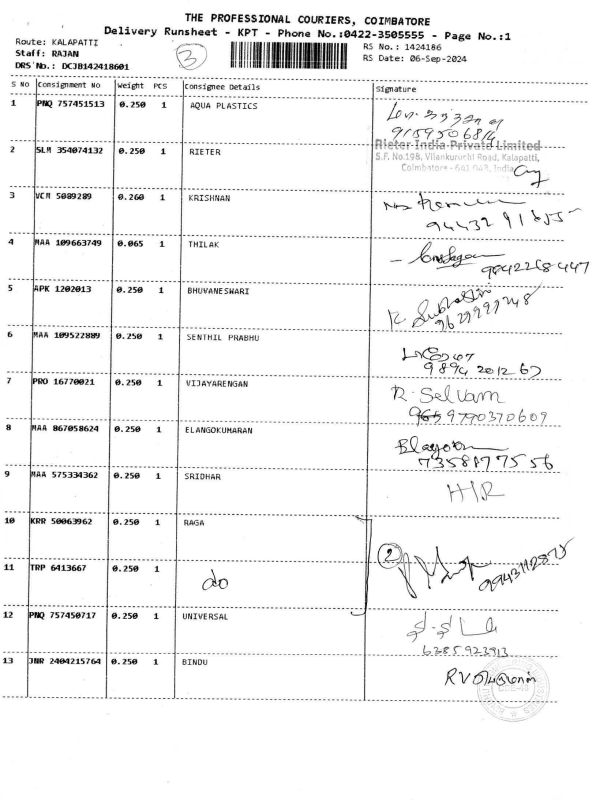 THE PROFESSIONAL COURIERS, COIMBATORE
Delivery Runsheet - KPT - Phone No.:0422-3505555 - Page No.:1
Route: KALAPATTI
Staff: RAJAN
DRS No.: DCJB142418601
3
RS No.: 1424186
RS Date: 06-Sep-2024
S No Consignment No Weight PCS Consignee Details Signature
1 PNQ 757451513 0.250 1 AQUA PLASTICS
9159506814
2 SLM 354074132 0.250 1 RIETER
Rieter India Private Limited
S.F. No.198, Vilankuruchi Road, Kalapatti,
Coimbatore - 641 043, India
3 VCM 5089289 0.260 1 KRISHNAN
94432 91855
4 MAA 109663749 0.065 1 THILAK
9942268447
5 APK 1202013 0.250 1 BHUVANESWARI
9629999248
6 MAA 109522889 0.250 1 SENTHIL PRABHU
9894 2012 67
7 PRO 16770021 0.250 1 VIJAYARENGAN
R. Selvam
9790370609
8 MAA 867058624 0.250 1 ELANGOKUMARAN
7358177556
9 MAA 575334362 0.250 1 SRIDHAR
H/R
10 KRR 50063962 0.250 1 RAGA
2
11 TRP 6413667 0.250 1
do
12 PNQ 757450717 0.250 1 UNIVERSAL
6385923913
13 JNR 2404215764 0.250 1 BINDU
RV